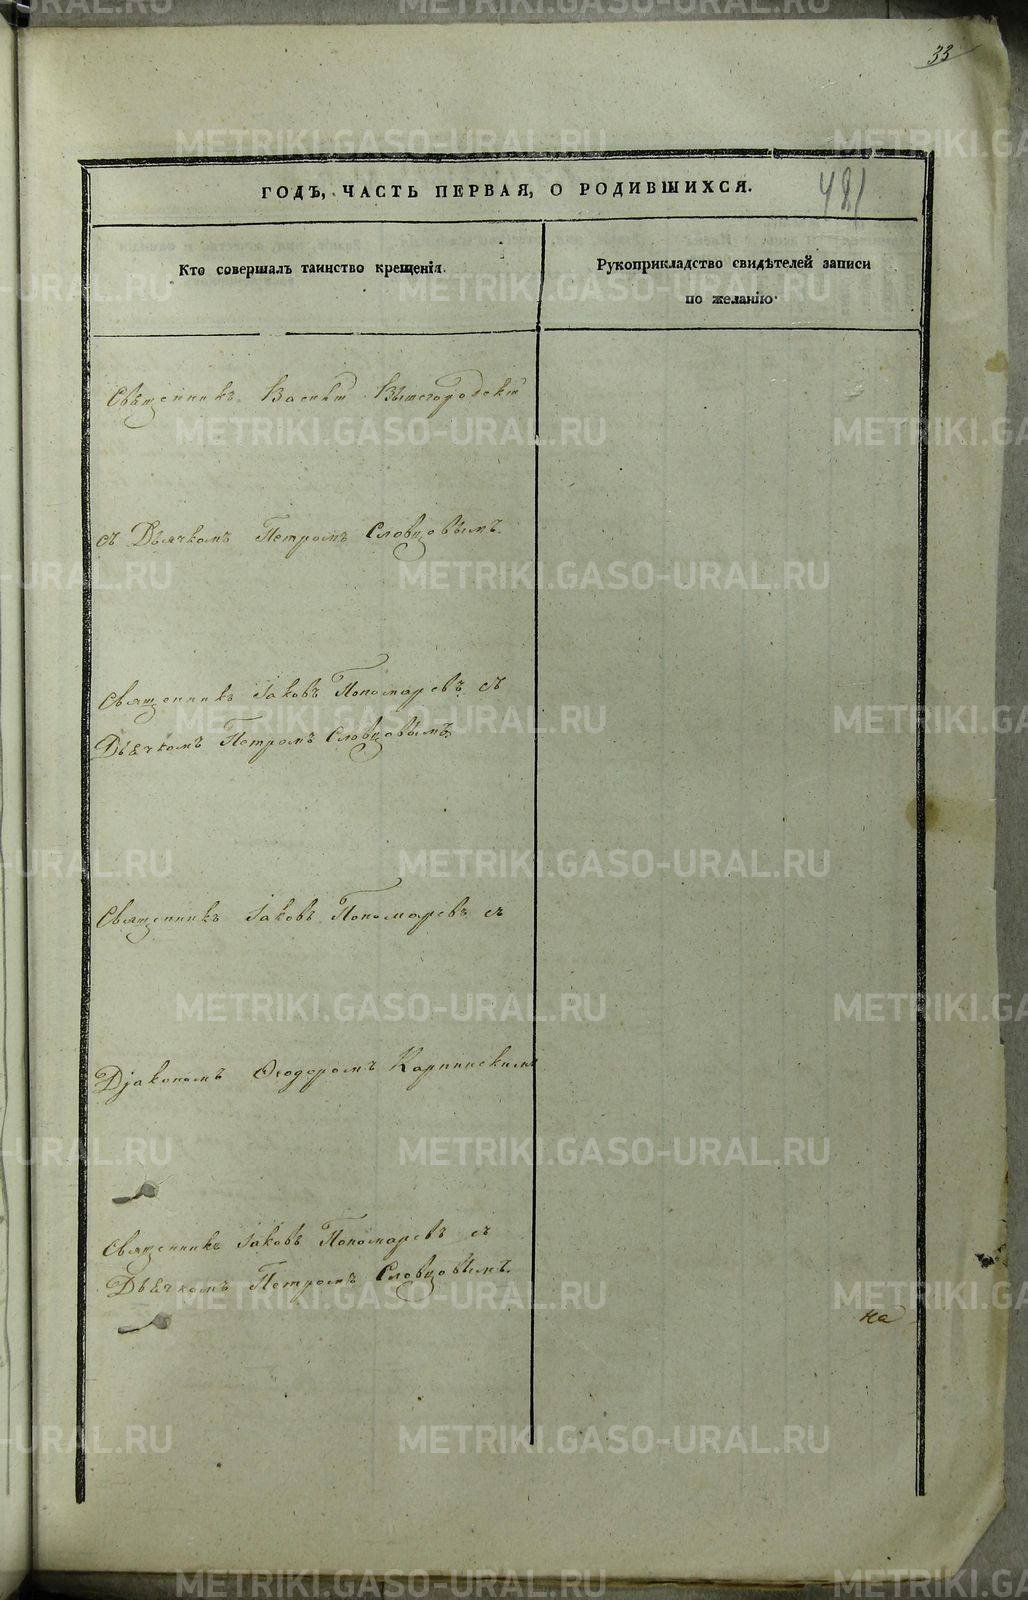 33
481
ГОДЪ, ЧАСТЬ ПЕРВАЯ, О РОДИВШИХСЯ.
Кто совершалъ таинство крещенія.
Рукоприкладство свидѣтелей записи
по желанію.
Священникъ Василій Вышегородскій
съ Дьячкомъ Петромъ Словцовымъ.
Священникъ Іаковъ Пономаревъ съ
Дьячкомъ Петромъ Словцовымъ.
Священникъ Іаковъ Пономаревъ съ
Діакономъ Ѳеодоромъ Карпинскимъ
Священникъ Іаковъ Пономаревъ съ
Дьячкомъ Петромъ Словцовымъ.
на
METRIKI.GASO-URAL.RU